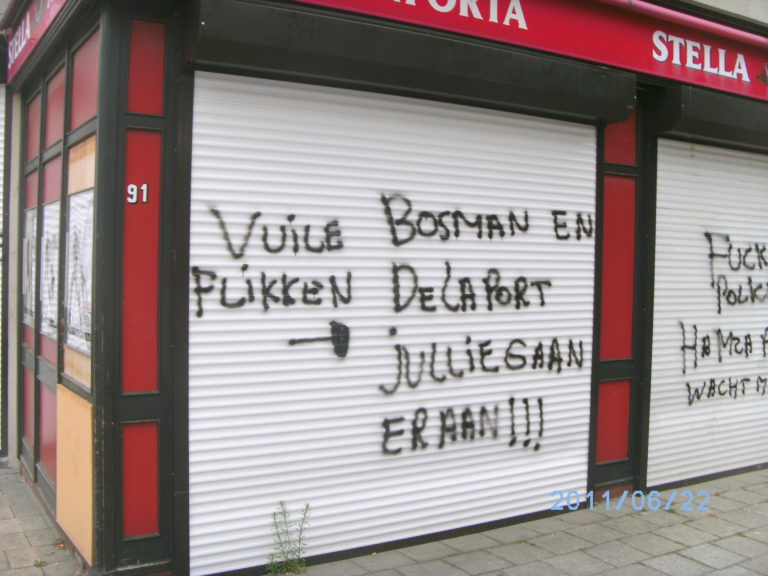 STELLA
PORTA
STELLA
91
VUILE BOSMAN EN
FLIKKEN DELAPORT
JULLIE GAAN
ER AAN!!!
FUCK
HAMZA
WACHT
2011/06/22